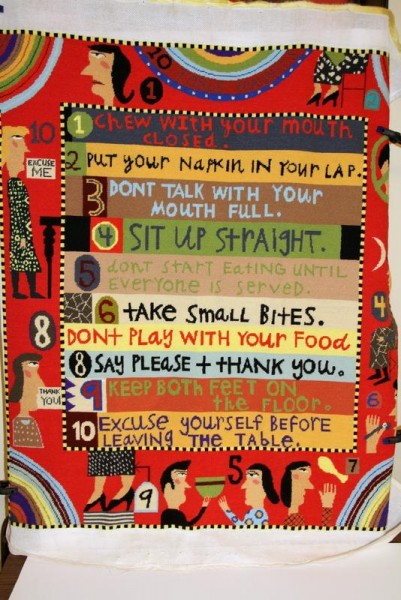 10
1
2
10
EXCUSE
ME
1 CHEW WITH YOUR MOUTH
CLOSED.
2 PUT YOUR NAPKIN IN YOUR LAP.
3 DONT TALK WITH YOUR
MOUTH FULL.
4 SIT UP STRAIGHT.
5 DONT START EATING UNTIL
EVERYONE IS SERVED.
6 TAKE SMALL BITES.
DONT PLAY WITH YOUR FOOD
8 SAY PLEASE + THANK YOU.
9 KEEP BOTH FEET ON
THE FLOOR.
10 EXCUSE YOURSELF BEFORE
LEAVING THE TABLE.
4
8
THANK
YOU
6
9
5
7